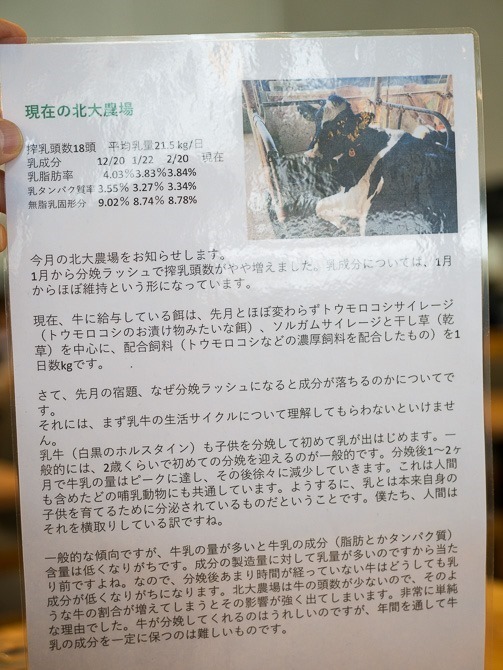 現在の北大農場
搾乳頭数18頭　平均乳量21.5 kg/日
乳成分　12/20　1/22　2/20　現在
乳脂肪率　4.03% 3.83% 3.84%
乳タンパク質率 3.55% 3.27% 3.34%
無脂乳固形分　9.02% 8.74% 8.78%
今月の北大農場をお知らせします。
1月から分娩ラッシュで搾乳頭数がやや増えました。乳成分については、1月
からほぼ維持という形になっています。
現在、牛に給与している餌は、先月とほぼ変わらずトウモロコシサイレージ
（トウモロコシのお漬け物みたいな餌）、ソルガムサイレージと干し草（乾
草）を中心に、配合飼料（トウモロコシなどの濃厚飼料を配合したもの）を1
日数kgです。
さて、先月の宿題、なぜ分娩ラッシュになると成分が落ちるのかについてで
す。
それには、まず乳牛の生活サイクルについて理解してもらわないといけませ
ん。
乳牛（白黒のホルスタイン）も子供を分娩して初めて乳が出はじめます。一
般的には、2歳くらいで初めての分娩を迎えるのが一般的です。分娩後1～2ヶ
月で牛乳の量はピークに達し、その後徐々に減少していきます。これは人間
も含めたどの哺乳動物にも共通しています。ようするに、乳とは本来自身の
子供を育てるために分泌されているものだということです。僕たち、人間は
それを横取りしている訳ですね。
一般的な傾向ですが、牛乳の量が多いと牛乳の成分（脂肪とかタンパク質）
含量は低くなりがちです。成分の製造量に対して乳量が多いのですから当た
り前ですよね。なので、分娩後あまり時間が経っていない牛はどうしても乳
成分が低くなりがちになります。北大農場は牛の頭数が少ないので、そのよ
うな牛の割合が増えてしまうとその影響が強く出てしまいます。非常に単純
な理由でした。牛が分娩してくれるのはうれしいのですが、年間を通して牛
乳の成分を一定に保つのは難しいものです。